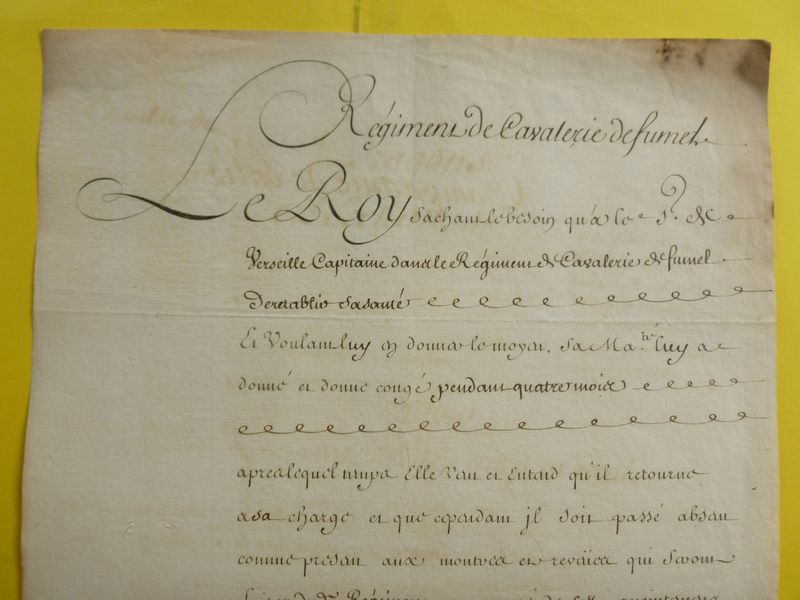 Régiment de Cavalerie de fumel.
Le Roy sachant le besoin qu'a le Sr. de
Verseille Capitaine dans le Régiment de Cavalerie de fumel
de retablir sa santé
Et Voulant luy en donner le moyen, sa Ma.té luy a
donné et donne congé pendant quatre mois
apres lequel temps Elle Veut et Entend qu'il retourne
a sa charge et que cependant jl soit passé absent
comme present aux montres et reveües qui seront
Régiment